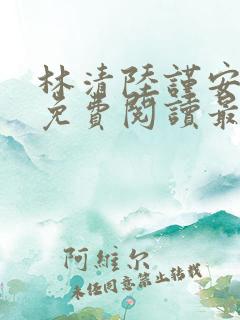 林清陸謹安
免費閱讀最
阿維尔
未经同意禁止转载